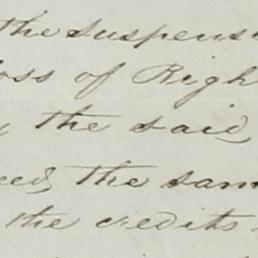 the suspens
loss of Righ
the said
the sam
the credits